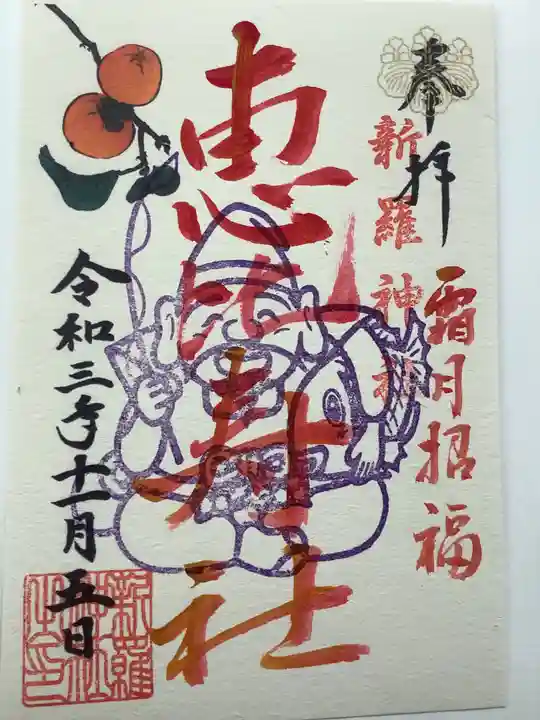 奉拝
新羅神社
霜月招福
恵比寿社
令和三年十一月五日
新羅神社之印